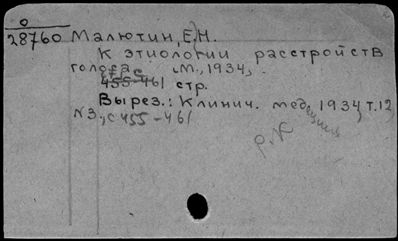 0
28760 Малютин, Е.Н.
К этиологии расстройств
голоса. М., 1934,
455-461 стр.
Вырез.: Клинич. медицина, 1934, т.12
N3, с 455-461
р.К